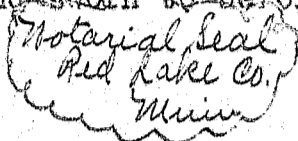 Notarial Seal
Red Lake Co.
Minn